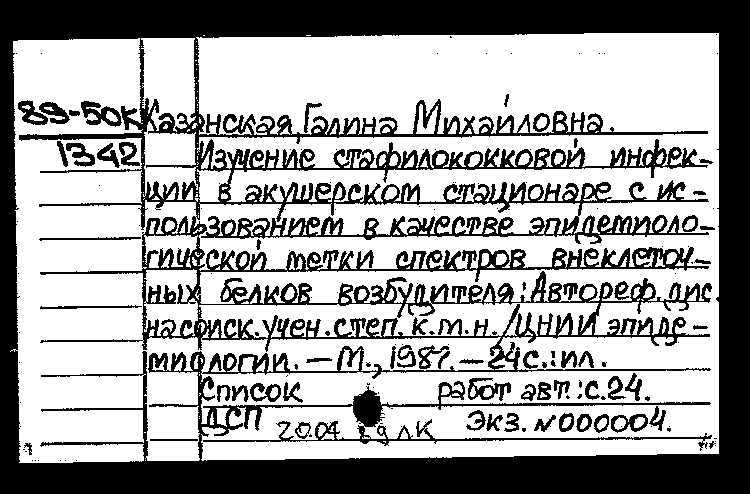 89-50К Казанская, Галина Михайловна.
1342 Изучение стафилококковой инфек-
ции в акушерском стационаре с ис-
пользованием в качестве эпидемиоло-
гической метки спектров внеклеточ-
ных белков возбудителя: Автореф. дис.
на соиск. учен. степ. к.м.н. /ЦНИИ эпиде-
миологии. – М., 1987. – 24 с.: ил.
Список работ авт.: с.24.
ДСП 20.04.89 ЛК Экз. №000004.